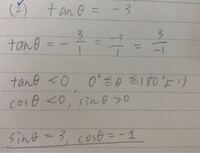 (2) tanθ = -3
tanθ = - 3/1 = -3/1 = 3/-1
tanθ < 0, 0°≦θ≦180°より
cosθ < 0, sinθ > 0
sinθ = 3, cosθ = -1